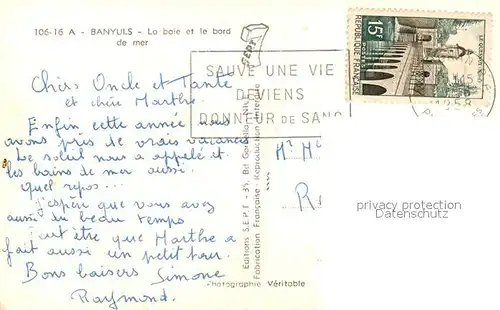 106-16 A - BANYULS - La baie et le bord
de mer
Chers Oncle et Tante
et chère Marthe.
Enfin cette année nous
avons pris de vraies vacances
Le soleil nous a appelé et
les bains de mer aussi.
Quel repos...
J'espère que vous avez
aussi du beau temps
Peut être que Marthe a
fait aussi un petit tour.
Bons baisers Simone
Raymond.
SEPT
SAUVE UNE VIE
DEVIENS
DONNEUR DE SANG
15F
RÉPUBLIQUE FRANÇAISE
POSTES
LE QUESNOY
1958
Editions S.E.P.T - 35, Bd
Fabrication Française - Reproduction Interdite
Photographie Véritable
privacy protection
Datenschutz